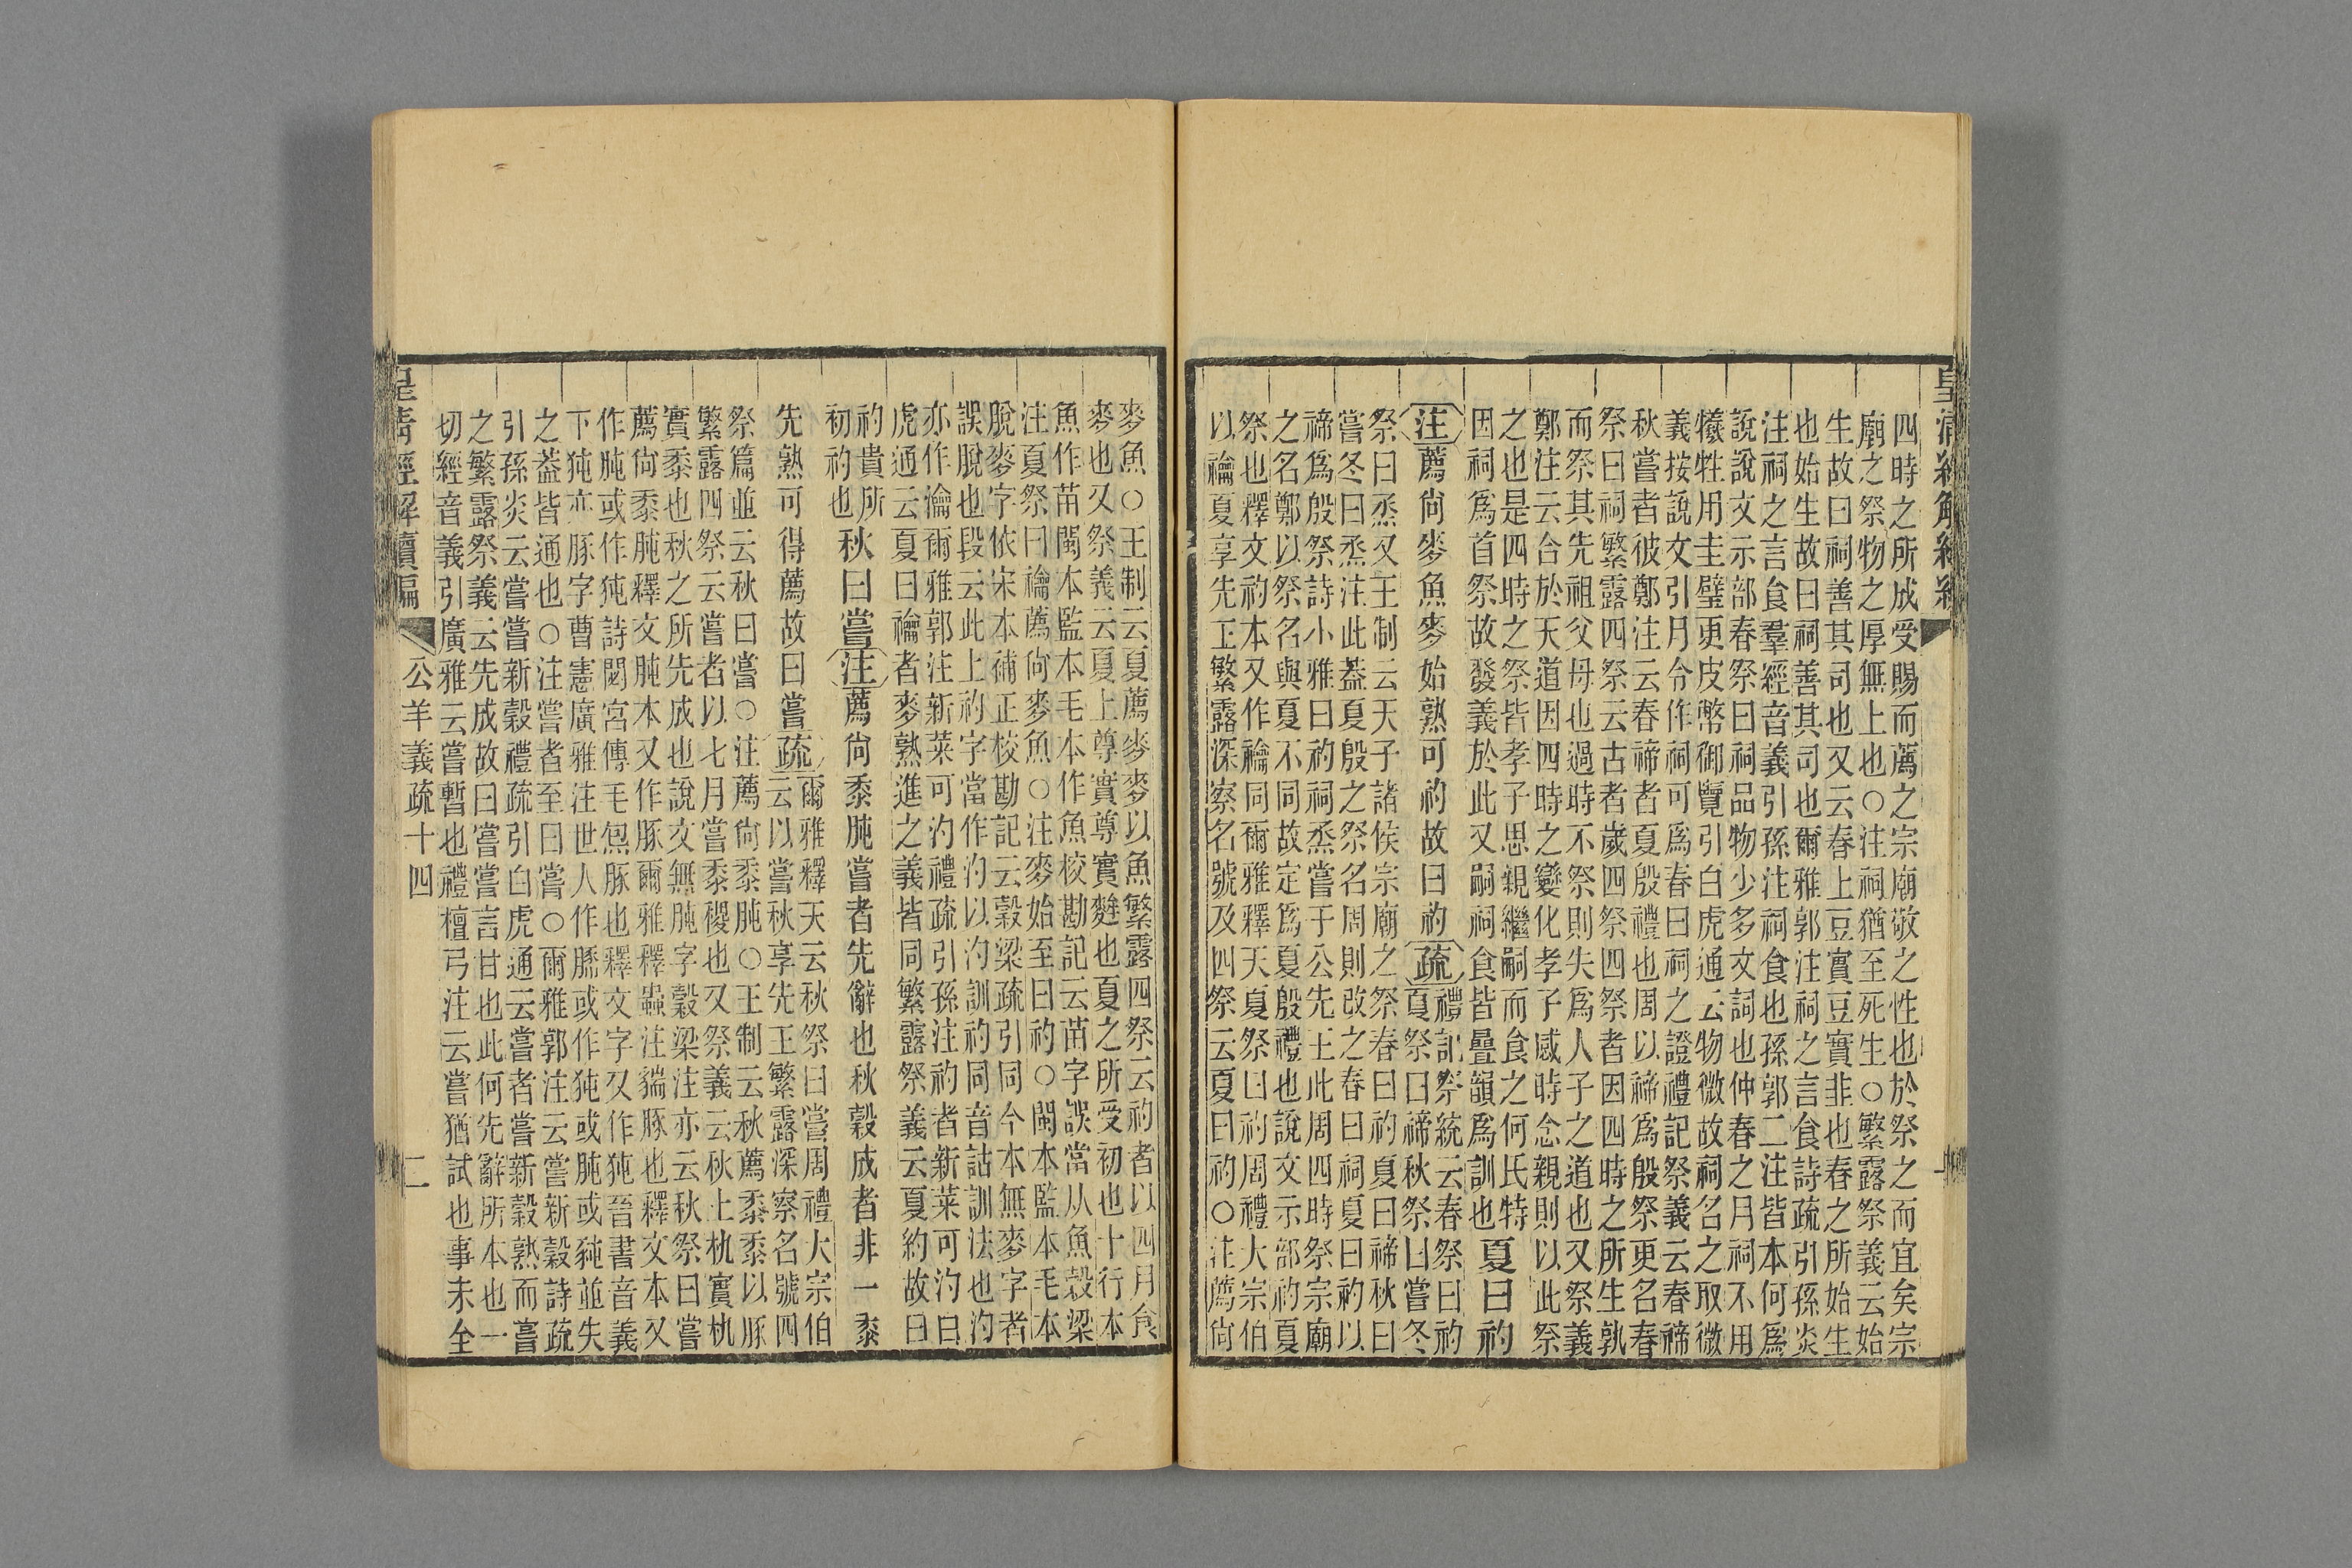 皇清經解續編
四時之所成受賜而薦之宗廟敬之性也於祭之而宜矣宗
廟之祭物之厚無上也○注祠猶至死生○繁露祭義云始
生故曰祠善其司也又云春上豆實豆實韭也春之所始生
也始生故曰祠善其司也爾雅郭注祠之言食詩疏引孫炎
注祠之言食羣經音義引孫注祠食也孫郭二注皆本何爲
說說文示部春祭曰祠品物少多文詞也仲春之月祠不用
犧牲用圭璧更皮幣御覽引白虎通云物微故祠名之取微
義按說文引月令作祠可爲春曰祠之證禮記祭義云春禘
秋嘗者彼鄭注云春禘者夏殷禮也周以禘爲殷祭更名春
祭曰祠繁露四祭云古者歲四祭四祭者因四時之所生孰
而祭其先祖父母也過時不祭則失爲人子之道也又祭義
鄭注云合於天道因四時之變化孝子感時念親則以此祭
之也是四時之祭皆孝子思親繼嗣而食之何氏特
因祠爲首祭故發義於此又嗣祠食皆疊韻爲訓也夏曰礿
注薦尙麥魚麥始熟可礿故曰礿疏禮記祭統云春祭曰礿
夏祭曰禘秋祭曰嘗冬
祭曰烝又王制云天子諸侯宗廟之祭春曰礿夏曰禘秋曰
嘗冬曰烝注此蓋夏殷之祭名周則改之春曰祠夏曰礿以
禘爲殷祭詩小雅曰礿祠烝嘗于公先王此周四時祭宗廟
之名鄭以祭名與夏不同故定爲夏殷禮也說文示部礿夏
祭也釋文礿本又作禴同爾雅釋天夏祭曰礿周禮大宗伯
以禴夏享先王繁露深察名號及四祭云夏曰礿○注薦尙
麥魚○王制云夏薦麥麥以魚繁露四祭云礿者以四月食
麥也又祭義云夏上尊實尊實麷也夏之所受初也十行本
魚作苗閩本監本毛本作魚校勘記云苗字誤當从魚穀梁
注夏祭曰禴薦尙麥魚○注麥始至曰礿○閩本監本毛本
脫麥字依宋本補正校勘記云穀梁疏引同今本無麥字者
誤脫也段云此上礿字當作汋以汋訓礿同音詁訓法也汋
亦作瀹爾雅郭注新菜可汋禮疏引孫注礿者新菜可汋曰
虎通云夏曰禴者麥熟進之義皆同繁露祭義云夏約故曰
礿貴所
初礿也秋曰嘗注薦尙黍肫嘗者先辭也秋穀成者非一黍
先熟可得薦故曰嘗疏爾雅釋天云秋祭曰嘗周禮大宗伯
云以嘗秋享先王繁露深察名號四
祭篇並云秋曰嘗○注薦尙黍肫○王制云秋薦黍黍以豚
繁露四祭云嘗者以七月嘗黍稷也又祭義云秋上朹實朹
實黍也秋之所先成也說文無肫字穀梁注亦云秋祭曰嘗
薦尙黍肫釋文肫本又作豚爾雅釋蟲注豵豚也釋文本又
作肫或作㹠詩閟宮傳毛炰豚也釋文字又作㹠晉書音義
下㹠亦豚字曹憲廣雅注世人作𦢩或作㹠或肫或豘並失
之蓋皆通也○注嘗者至曰嘗○爾雅郭注云嘗新穀詩疏
引孫炎云嘗嘗新穀禮疏引白虎通云嘗者嘗新穀熟而嘗
之繁露祭義云先成故曰嘗嘗言甘也此何先辭所本也一
切經音義引廣雅云嘗暫也禮檀弓注云嘗猶試也事未全
皇清經解續編 公羊義疏十四 二